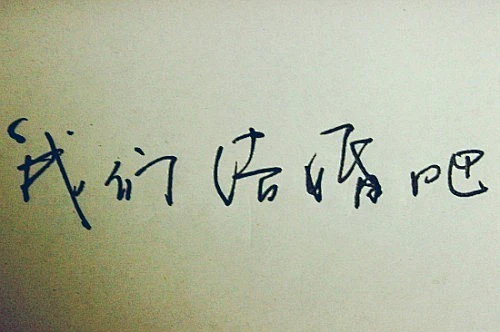 “我们结婚吧